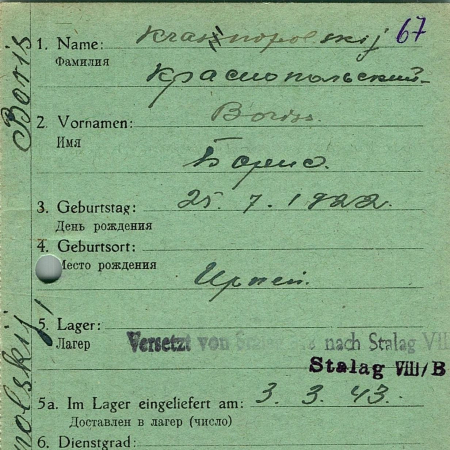 Boris
nolskij,
67
1. Name: Krasnopolskij
Фамилия
Краснопольский
2. Vornamen: Boriss.
Имя
Борис.
3. Geburtstag: 25. 7. 1922.
День рождения
4. Geburtsort:
Место рождения
Ирпей.
5. Lager: Versetzt von nach Stalag VII
Лагер
Stalag VIII/B
5a. Im Lager eingeliefert am: 3. 3. 43.
Доставлен в лагер (число)
6. Dienstgrad: